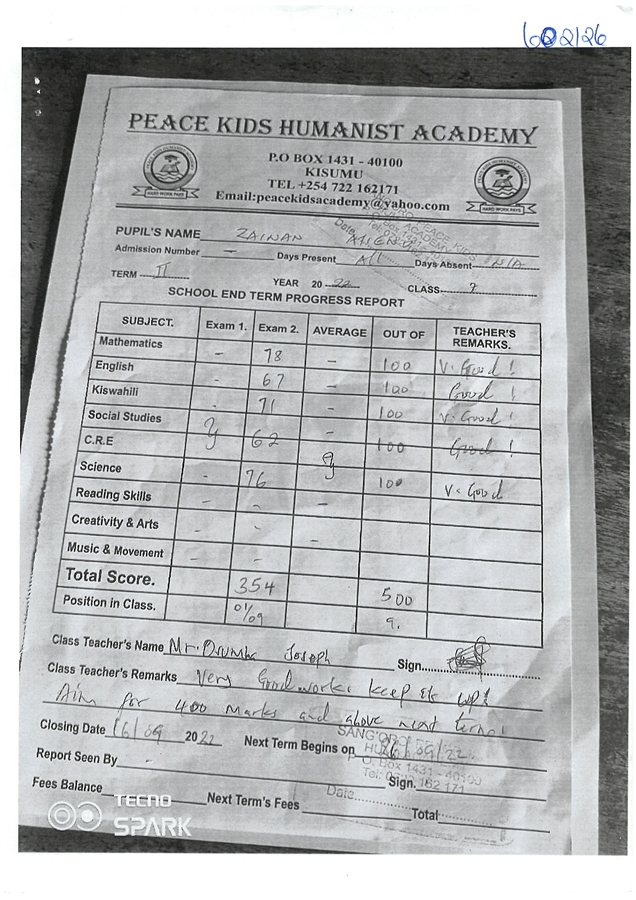 602126
PEACE KIDS HUMANIST ACADEMY
P.O BOX 1431 - 40100
KISUMU
TEL +254 722 162171
Email:peacekidsacademy@yahoo.com
HARD WORK PAYS HARD WORK PAYS
PUPIL'S NAME ZAINAN
Admission Number — Days Present All Days Absent N/A
TERM II YEAR 20 22 CLASS 7
SCHOOL END TERM PROGRESS REPORT
SUBJECT. Exam 1. Exam 2. AVERAGE OUT OF TEACHER'S REMARKS.
Mathematics - 78 - 100 V. Good !
English - 67 - 100 Good !
Kiswahili - 71 - 100 V. Good !
Social Studies 62 - 100 Good !
C.R.E
Science - 76 100 V. Good
Reading Skills - - -
Creativity & Arts - - -
Music & Movement - -
Total Score. 354 500
Position in Class. 01/09 9.
Class Teacher's Name Mr. Joseph Sign.
Class Teacher's Remarks Very Good work. keep it up!
Aim for 400 marks and above next term!
Closing Date 16/09 2022 Next Term Begins on 26/09/22.
Report Seen By - Sign.
Fees Balance Next Term's Fees Total
P.O. Box 1431 - 40100
Date
TECNO
SPARK